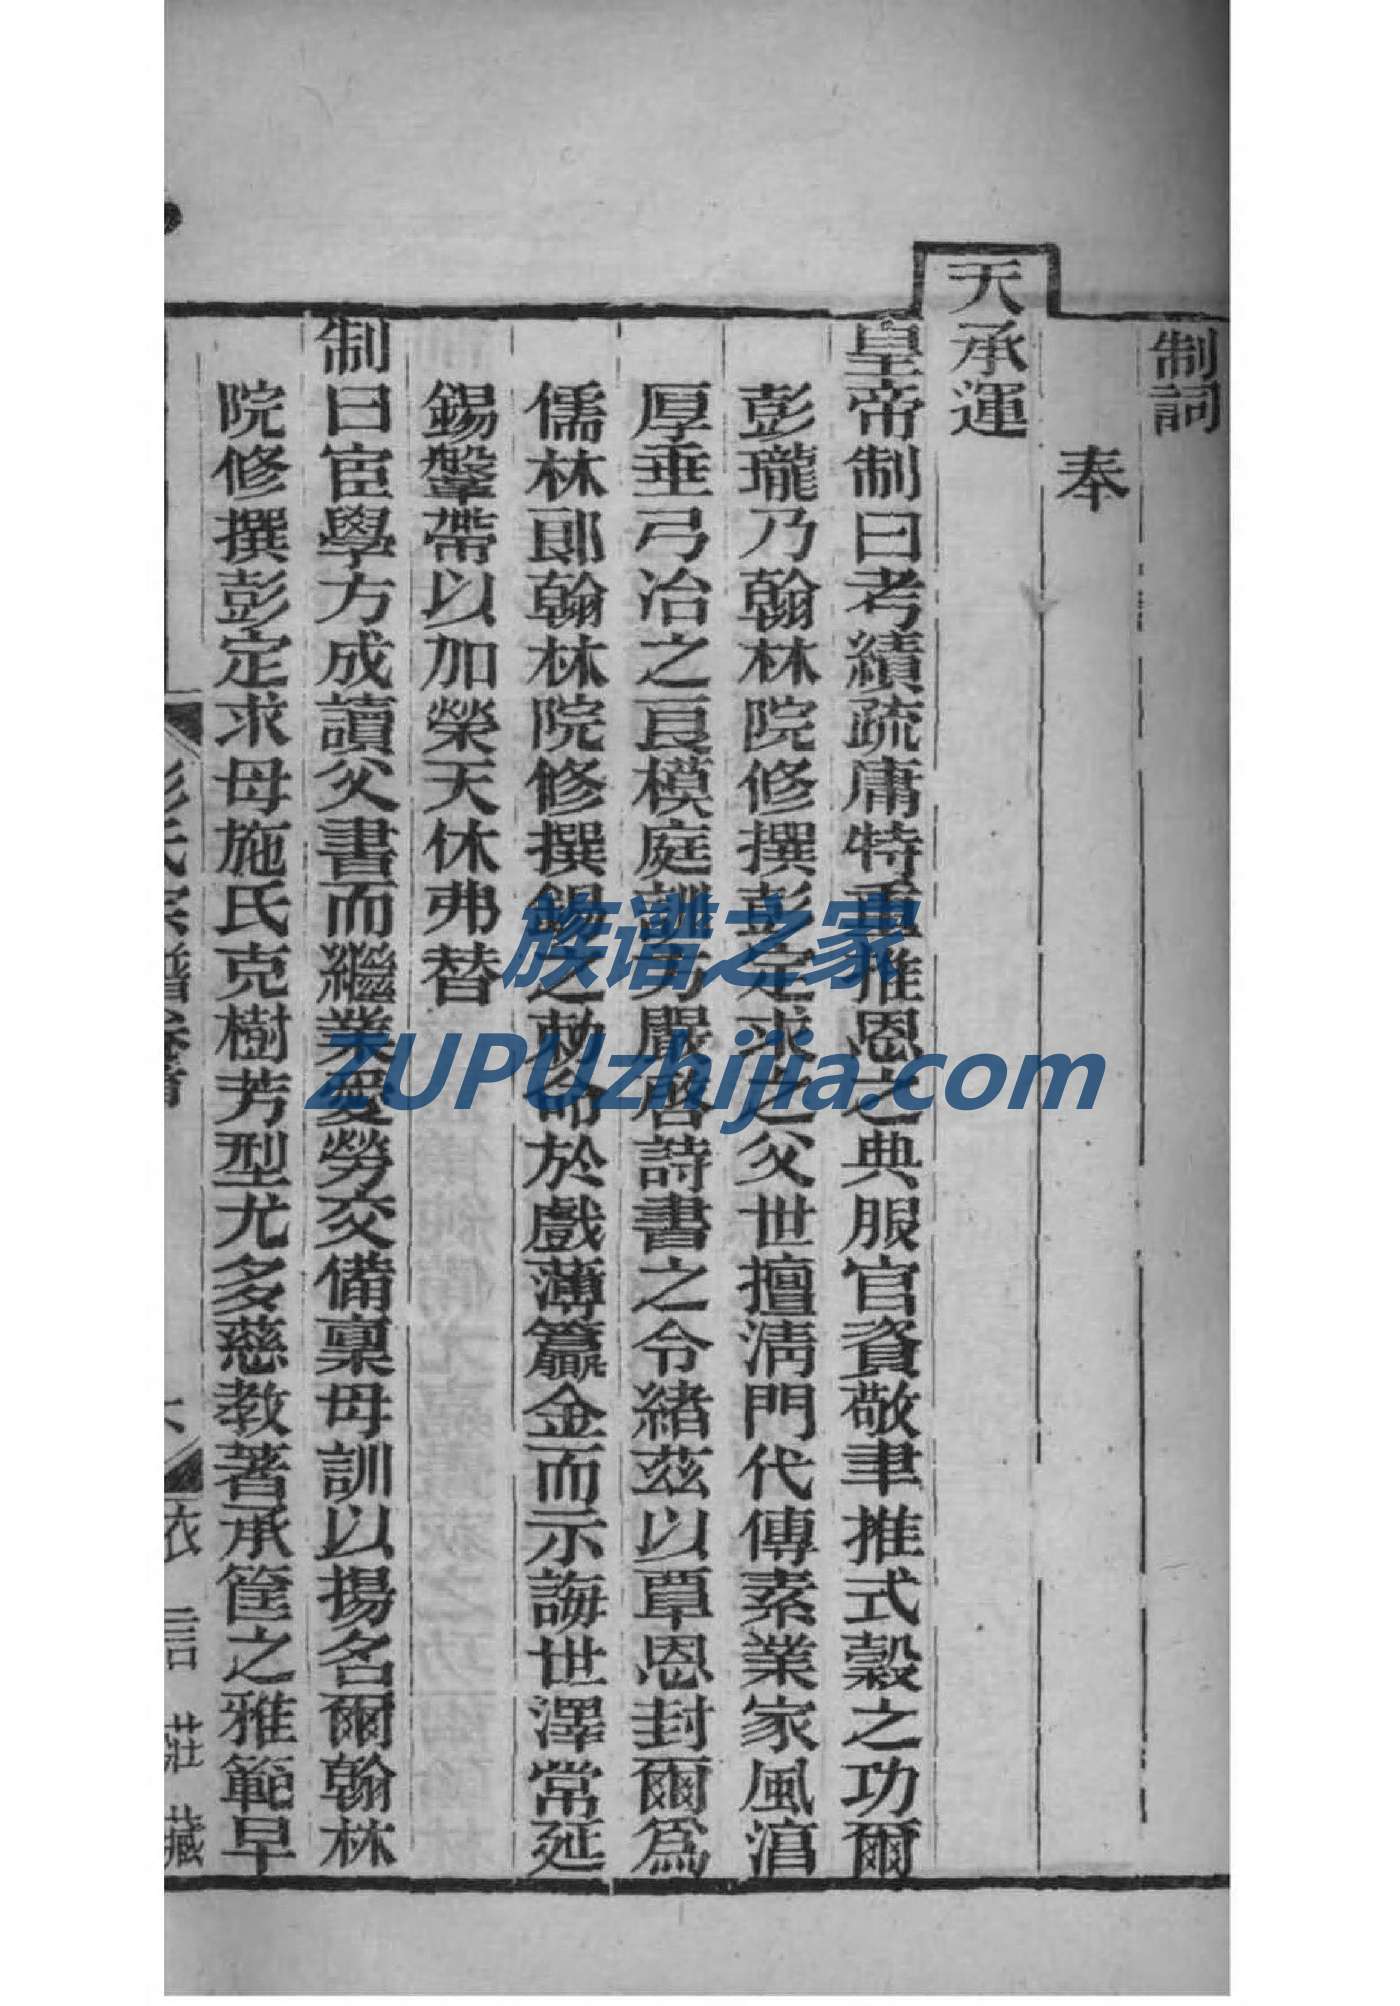 制詞
奉
天承運
皇帝制曰考績疏庸特重推恩之典服官資敬聿推式穀之功爾
彭瓏乃翰林院修撰彭定求之父世擅淸門代傳素業家風湻
厚垂弓冶之良模庭訓方嚴啓詩書之令緒茲以覃恩封爾爲
儒林郞翰林院修撰錫之勅命於戲薄籯金而示誨世澤常延
錫鞶帶以加榮天休弗替
制曰宦學方成讀父書而繼業愛勞交備稟母訓以揚名爾翰林
院修撰彭定求母施氏克樹芳型尤多慈教著承筐之雅範早
彭氏宗譜卷首
衣言莊藏
族谱之家
ZUPUzhijia.com